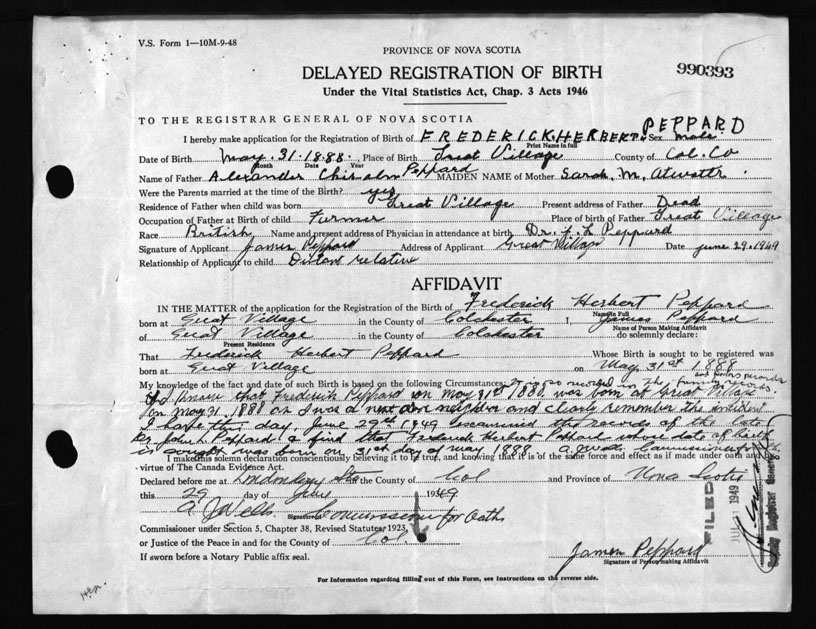 V.S. Form 1—10M-9-48
PROVINCE OF NOVA SCOTIA
DELAYED REGISTRATION OF BIRTH
990393
Under the Vital Statistics Act, Chap. 3 Acts 1946
TO THE REGISTRAR GENERAL OF NOVA SCOTIA
PEPPARD
I hereby make application for the Registration of Birth of FREDERICK HERBERT Sex male
Print Name in full
Date of Birth May 31. 1888. Place of Birth Great Village County of Col. Co
Month Date Year
Name of Father Alexander Chisholm Peppard MAIDEN NAME of Mother Sarah. M. Atwater
Were the Parents married at the time of the Birth? yes
Residence of Father when child was born Great Village Present address of Father Dead
Occupation of Father at Birth of child Farmer Place of birth of Father Great Village
Race British Name and present address of Physician in attendance at birth Dr. J. L Peppard
Signature of Applicant James Peppard Address of Applicant Great Village Date June 29. 1949
Relationship of Applicant to child Distant relative
AFFIDAVIT
IN THE MATTER of the application for the Registration of the Birth of Frederick Herbert Peppard
Name in Full
born at Great Village in the County of Colchester I, James Peppard
Name of Person Making Affidavit
of Great Village in the County of Colchester do solemnly declare:
Present Residence
That Frederick Herbert Peppard Whose Birth is sought to be registered was
born at Great Village on May 31st 1888
My knowledge of the fact and date of such Birth is based on the following Circumstances: It is so recorded in the family records
and Doctors records
and know that Frederick Peppard on May 31st 1888 was born at Great Village
on May 31. 1888 as I was a next door neighbor and clearly remember the incident
I have this day, June 29th 1949 examined the records of the late
Dr John L Peppard & find that Frederick Herbert Peppard whose date of Birth
is sought was born on 31st day of May 1888. A. J Wells Commissioner
I make this solemn declaration conscientiously believing it to be true, and knowing that it is of the same force and effect as if made under oath
virtue of The Canada Evidence Act.
Declared before me at Londonderry Sta the County of Col and Province of Nova Scotia
this 29 day of June 1949
A. J Wells Commissioner for Oaths
Signature
Commissioner under Section 5, Chapter 38, Revised Statutes, 1923
or Justice of the Peace in and for the County of Col
If sworn before a Notary Public affix seal.
James Peppard
Signature of Person making Affidavit
For Information regarding filling out of this Form, see Instructions on the reverse side.
FILED
1949
Deputy Registrar General